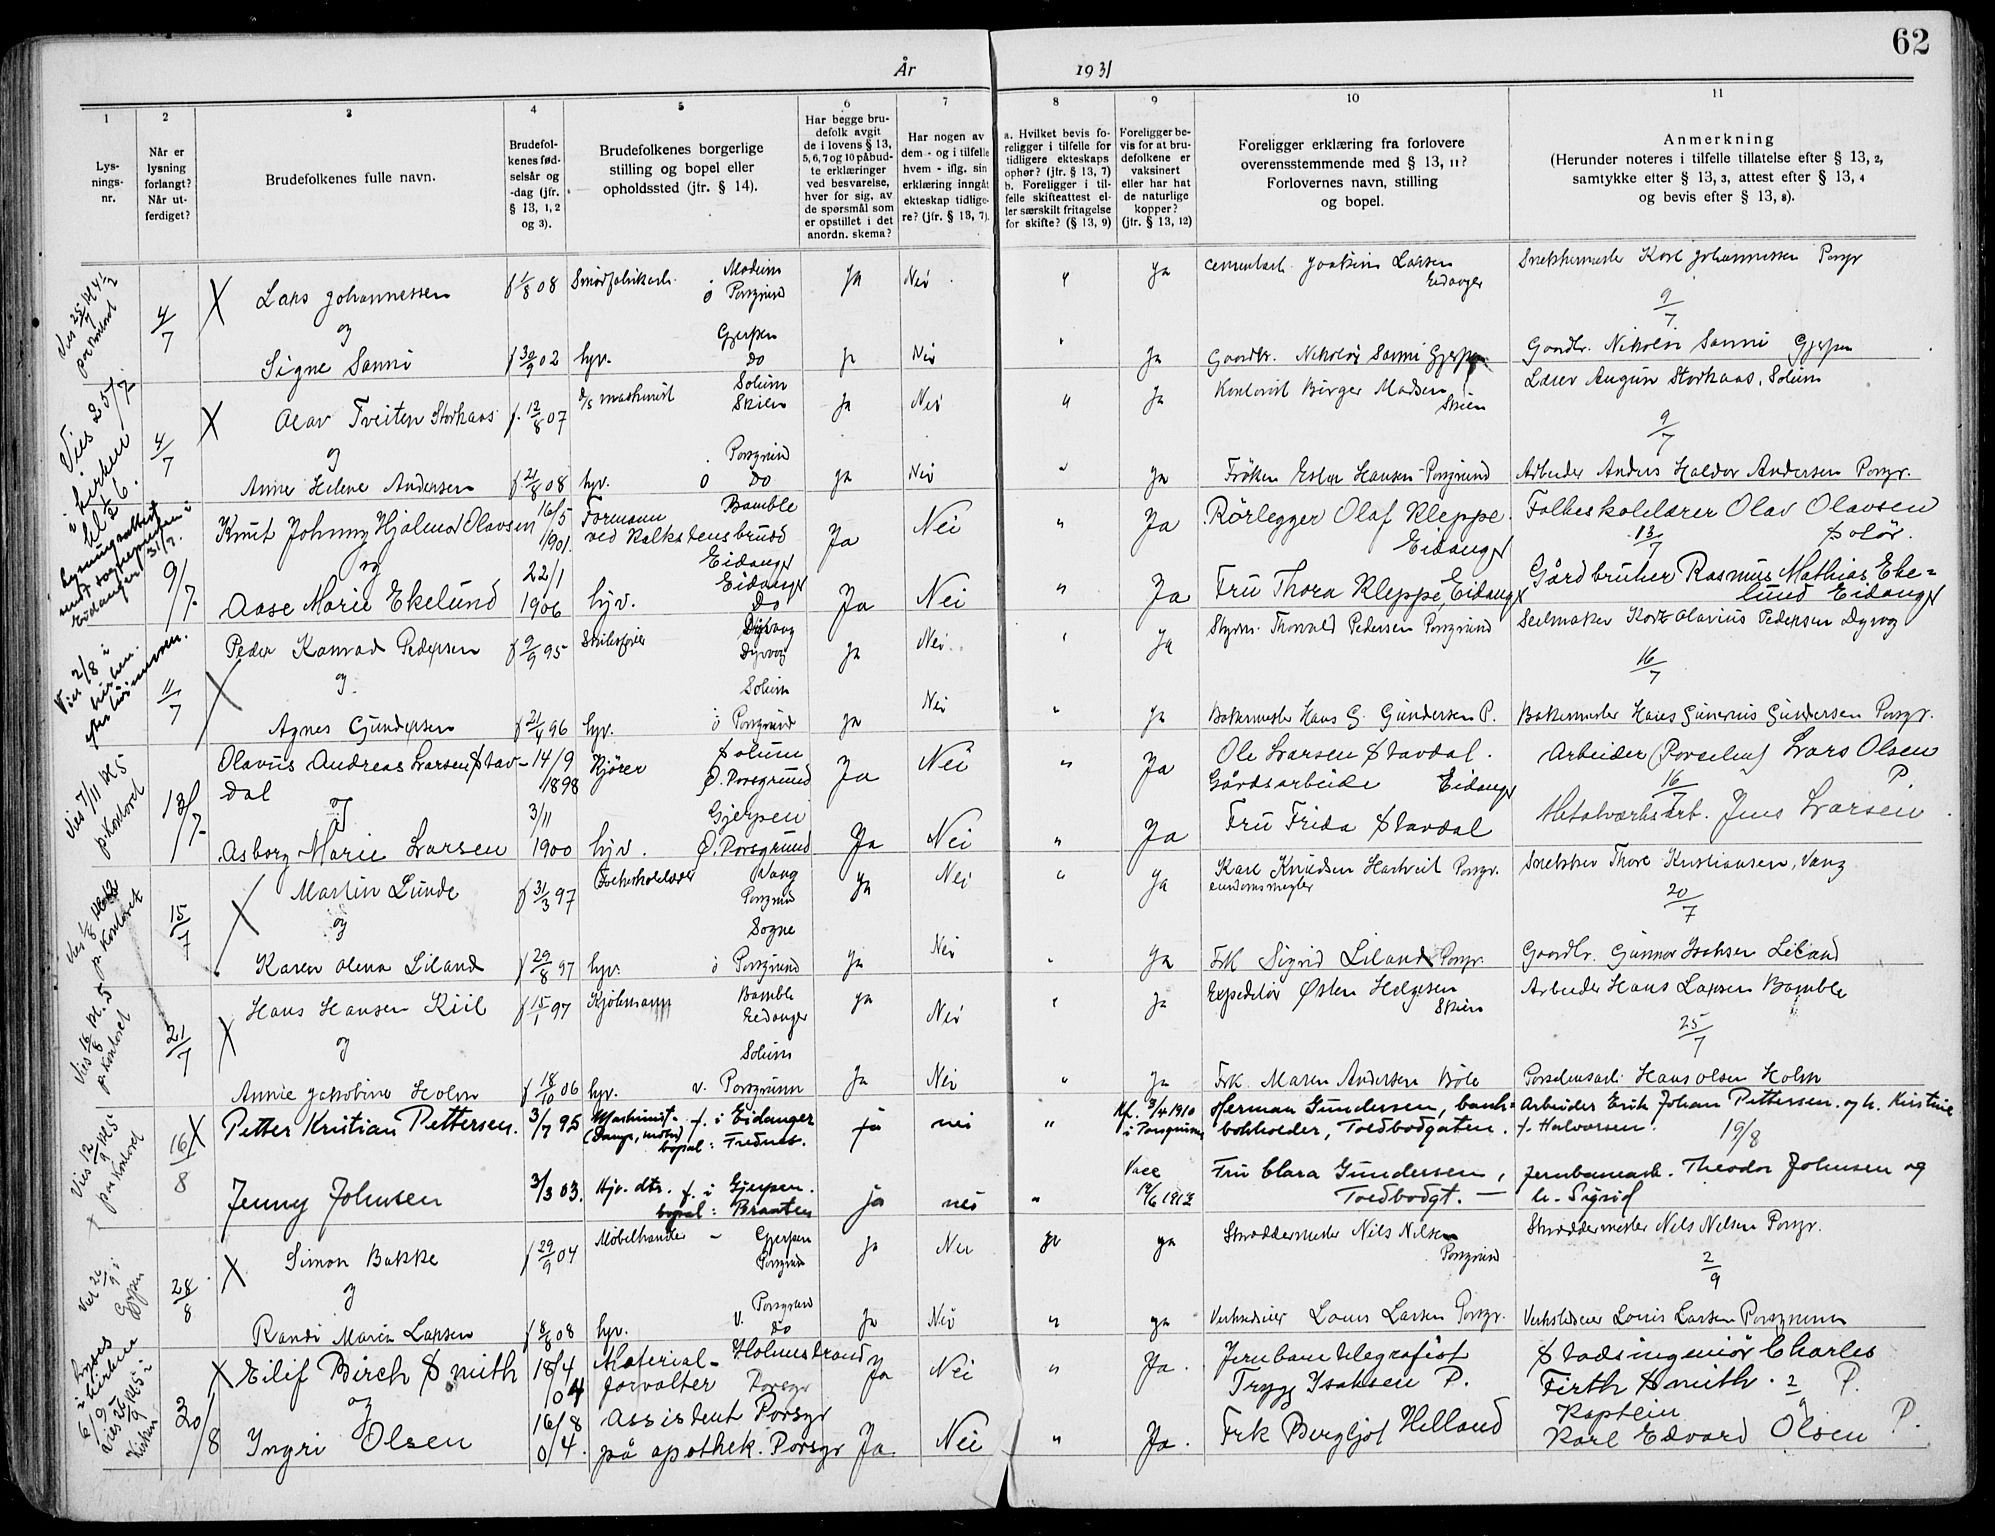 62
År 1931
1
2
3
4
5
6
7
8
9
10
11
Lys-
nings-
nr.
Når er
lysning
forlangt?
Når ut-
ferdiget?
Brudefolkenes fulle navn.
Brudefol-
kenes fød-
selsår og
-dag (jfr.
§ 13, 1, 2
og 3).
Brudefolkenes borgerlige
stilling og bopel eller
opholdssted (jfr. § 14).
Har begge bru-
defolk avgit
de i lovens § 13,
5, 6, 7 og 10 påbud-
te erklæringer
ved besvarelse,
hver for sig, av
de spørsmål som
er opstillet i det
anordn. skema?
Har nogen av
dem - og i tilfelle
hvem - iflg. sin
erklæring inngåt
ekteskap tidlige-
re? (jfr. § 13, 7).
a. Hvilket bevis fo-
religger i tilfelle for
tidligere ekteskaps
ophør? (jfr. § 13, 7)
b. Foreligger i til-
felle skifteattest el-
ler særskilt fritagelse
for skifte? (§ 13, 9)
Foreligger be-
vis for at bru-
defolkene er
vaksinert
eller har hat
de naturlige
kopper?
(jfr. § 13, 12)
Foreligger erklæring fra forlovere
overensstemmende med § 13, 11?
Forlovernes navn, stilling
og bopel.
Anmerkning
(Herunder noteres i tilfelle tillatelse efter § 13, 2,
samtykke efter § 13, 3, attest efter § 13, 4
og bevis efter § 13, 8).
4/7 X Lars Johannessen f 1/8 08 Modum
ö Porsgrund Ja Nei " Ja Joakim Larsen
Eidanger Snekkermester Karl Johannessen Porsgr
9/7
og
Signe Sanni f 30/9 02 hyv. Gjerpen
Do Ja Nei " Ja Gaardbr. Nikolai Sanni Gjerpen Gaardbr. Nikolai Sanni Gjerpen
Vies 25/7
i kirken
kl 6.
4/7 X Olav Tveiten Storkaas f. 12/8 07 D/s maskinist Solum
Skien Ja Nei " Ja Kontorist Birger Madsen
Skien Lærer August Storkaas, Solum
9/7
og
Anne Helene Andersen f 21/8 08 hyv. Porsgrund
ö Do Ja Nei " Ja Frøken Ester Hansen Porsgrund Arbeider Anders Haldor Andersen Porsgr.
Eidanger 31/7.
9/7 Knut Johnny Hjalmar Olavsen 16/5
1901. Formann
ved Kalkstensbrudd Bamble
Eidanger Ja Nei " Ja Rørlegger Olaf Kleppe
Eidanger Folkeskolelærer Olav Olavsen
Solør.
13/7
og
Aase Marie Ekelund 22/1
1906 hyv. Eidanger
Do Ja Nei " Ja Fru Thora Kleppe, Eidanger Gårdbruker Rasmus Mathias Eke-
lund Eidanger
Vies 2/8 i
kirken.
11/7 Peder Konrad Pedersen f 9/9 95 Dyvaag
Dyvaag Ja Nei " Ja Styrm. Thorvald Pedersen Porsgrund Seilmaker Olavius Pedersen Dyvag
16/7
og
Agnes Gundersen f 21/4 96 hyv. Solum
ö Porsgrund Ja Nei " Ja Bakermester Hans G. Gundersen P. Bakermester Hans Gundersen Porsgr.
Vies 7/11 kl 5
p. Kontoret
13/7 Olavus Andreas Larsen Stav-
dal 14/9
1898 Kjører Solum
Ø. Porsgrund Ja Nei " Ja Ole Larsen Stavdal.
Gårdsarbeide Eidanger Arbeider (Porselen) Lars Olsen
P.
16/7
og
Asborg Marie Larsen 3/11
1900 hyv. Gjerpen
Ø. Porsgrund Ja Nei " Ja Fru Frida Stavdal Metalværksarb. Jens Larsen
p. Kontoret
15/7 Martin Lunde f 31/3 97 Vang
Porsgrund Ja Nei " Ja Karl Knudsen Hartveit Porsgr.
eiendomsmegler Snekker Thore Kristiansen, Vang
20/7
og
Karen Olena Liland f 29/8 97 hyv. Sogne
ö Porsgrund Ja Nei " Ja Frk Sigrid Liland Porsgr. Gaardbr. Gunnar Isaksen Liland
Vies 16/8 kl. 5
p. Kontoret
21/7 X Hans Hansen Kiil f 15/1 97 Kjøbmann Bamble
Eidanger Ja Nei " Ja Expeditør Østen Helgesen
Skien Arbeider Hans Larsen Bamble
25/7
og
Annie Jakobine Holm f 18/10 06 hyv. Solum
v. Porsgrunn Ja Nei " Ja Frk. Maren Andersen Böle Porselensarb. Hans Olsen Holm
Vies 12/9 kl 5
paa kontoret
16/8 X Petter Kristian Pettersen. 3/7 95 Maskinist. f. i Eidanger
(Damp, motor) bopel: Frednes. ja nei " 3/4 1910
i Porsgrunn Herman Gundersen, bank=
bokholder, Toldbodgaten. Arbeider Erik Johan Pettersen. og h. Kirstine
f. Halvorsen. 19/8
Jenny Johnsen 3/3 03. Hjv. dtr. f. i Gjerpen.
bopel: Braaten ja nei " Vacc
12/6 1912 Fru Clara Gundersen,
Toldbodgt. Jernbanearb. Theodor Johnsen og
h. Sigrid
28/8 X Simon Bakke f 29/9 04 Møbelhandler Gjerpen
Porsgrund Ja Nei Ja Skræddermester Nils Nilsen
Porsgrund Skræddermester Nils Nilsen Porsgr.
2/9
og
Randi Marie Larsen f 8/8 08 hyv. v. Porsgrund
Do Ja Nei " Ja Louis Larsen Porsgr. Louis Larsen Porsgrunn
30/8 X Eilif Birch Smith 18/4
04 Material-
forvalter Holmestrand
Porsgr Ja Nei " Ja. Jernbanetelegrafist
Trygg Isaksen P. Stadsingeniør Charles
Firth Smith. P.
2/9
og
Ingri Olsen 16/8
04. Assistent Porsgr
på apothek. Porsgr Ja Nei " Ja. Frk Bergljot Helland Kaptein
Karl Edvard Olsen P.